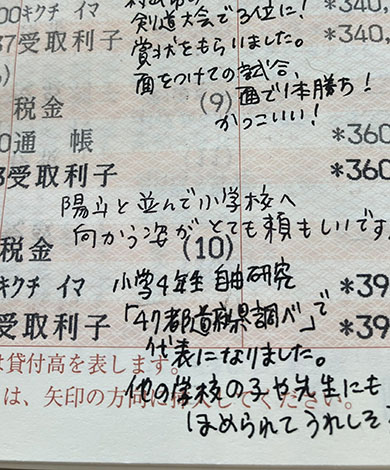 剣道大会で3位に!
00キクチ イマ *340,
賞状をもらいました。
37受取利子 *340,
面をつけての試合、
面で1本勝ち!
税金 (9)
かっこいい!
0通 帳 *360
3受取利子 *360
陽斗と並んで小学校へ
向かう姿がとても頼もしいです
税金 (10)
キクチ イマ *39
小学4年生 自由研究
受取利子 *39
「47都道府県調べ」で
代表になりました。
は貸付高を表します。
他の学校の子や先生にも
は、矢印の方向に
てください。
ほめられてうれしそ